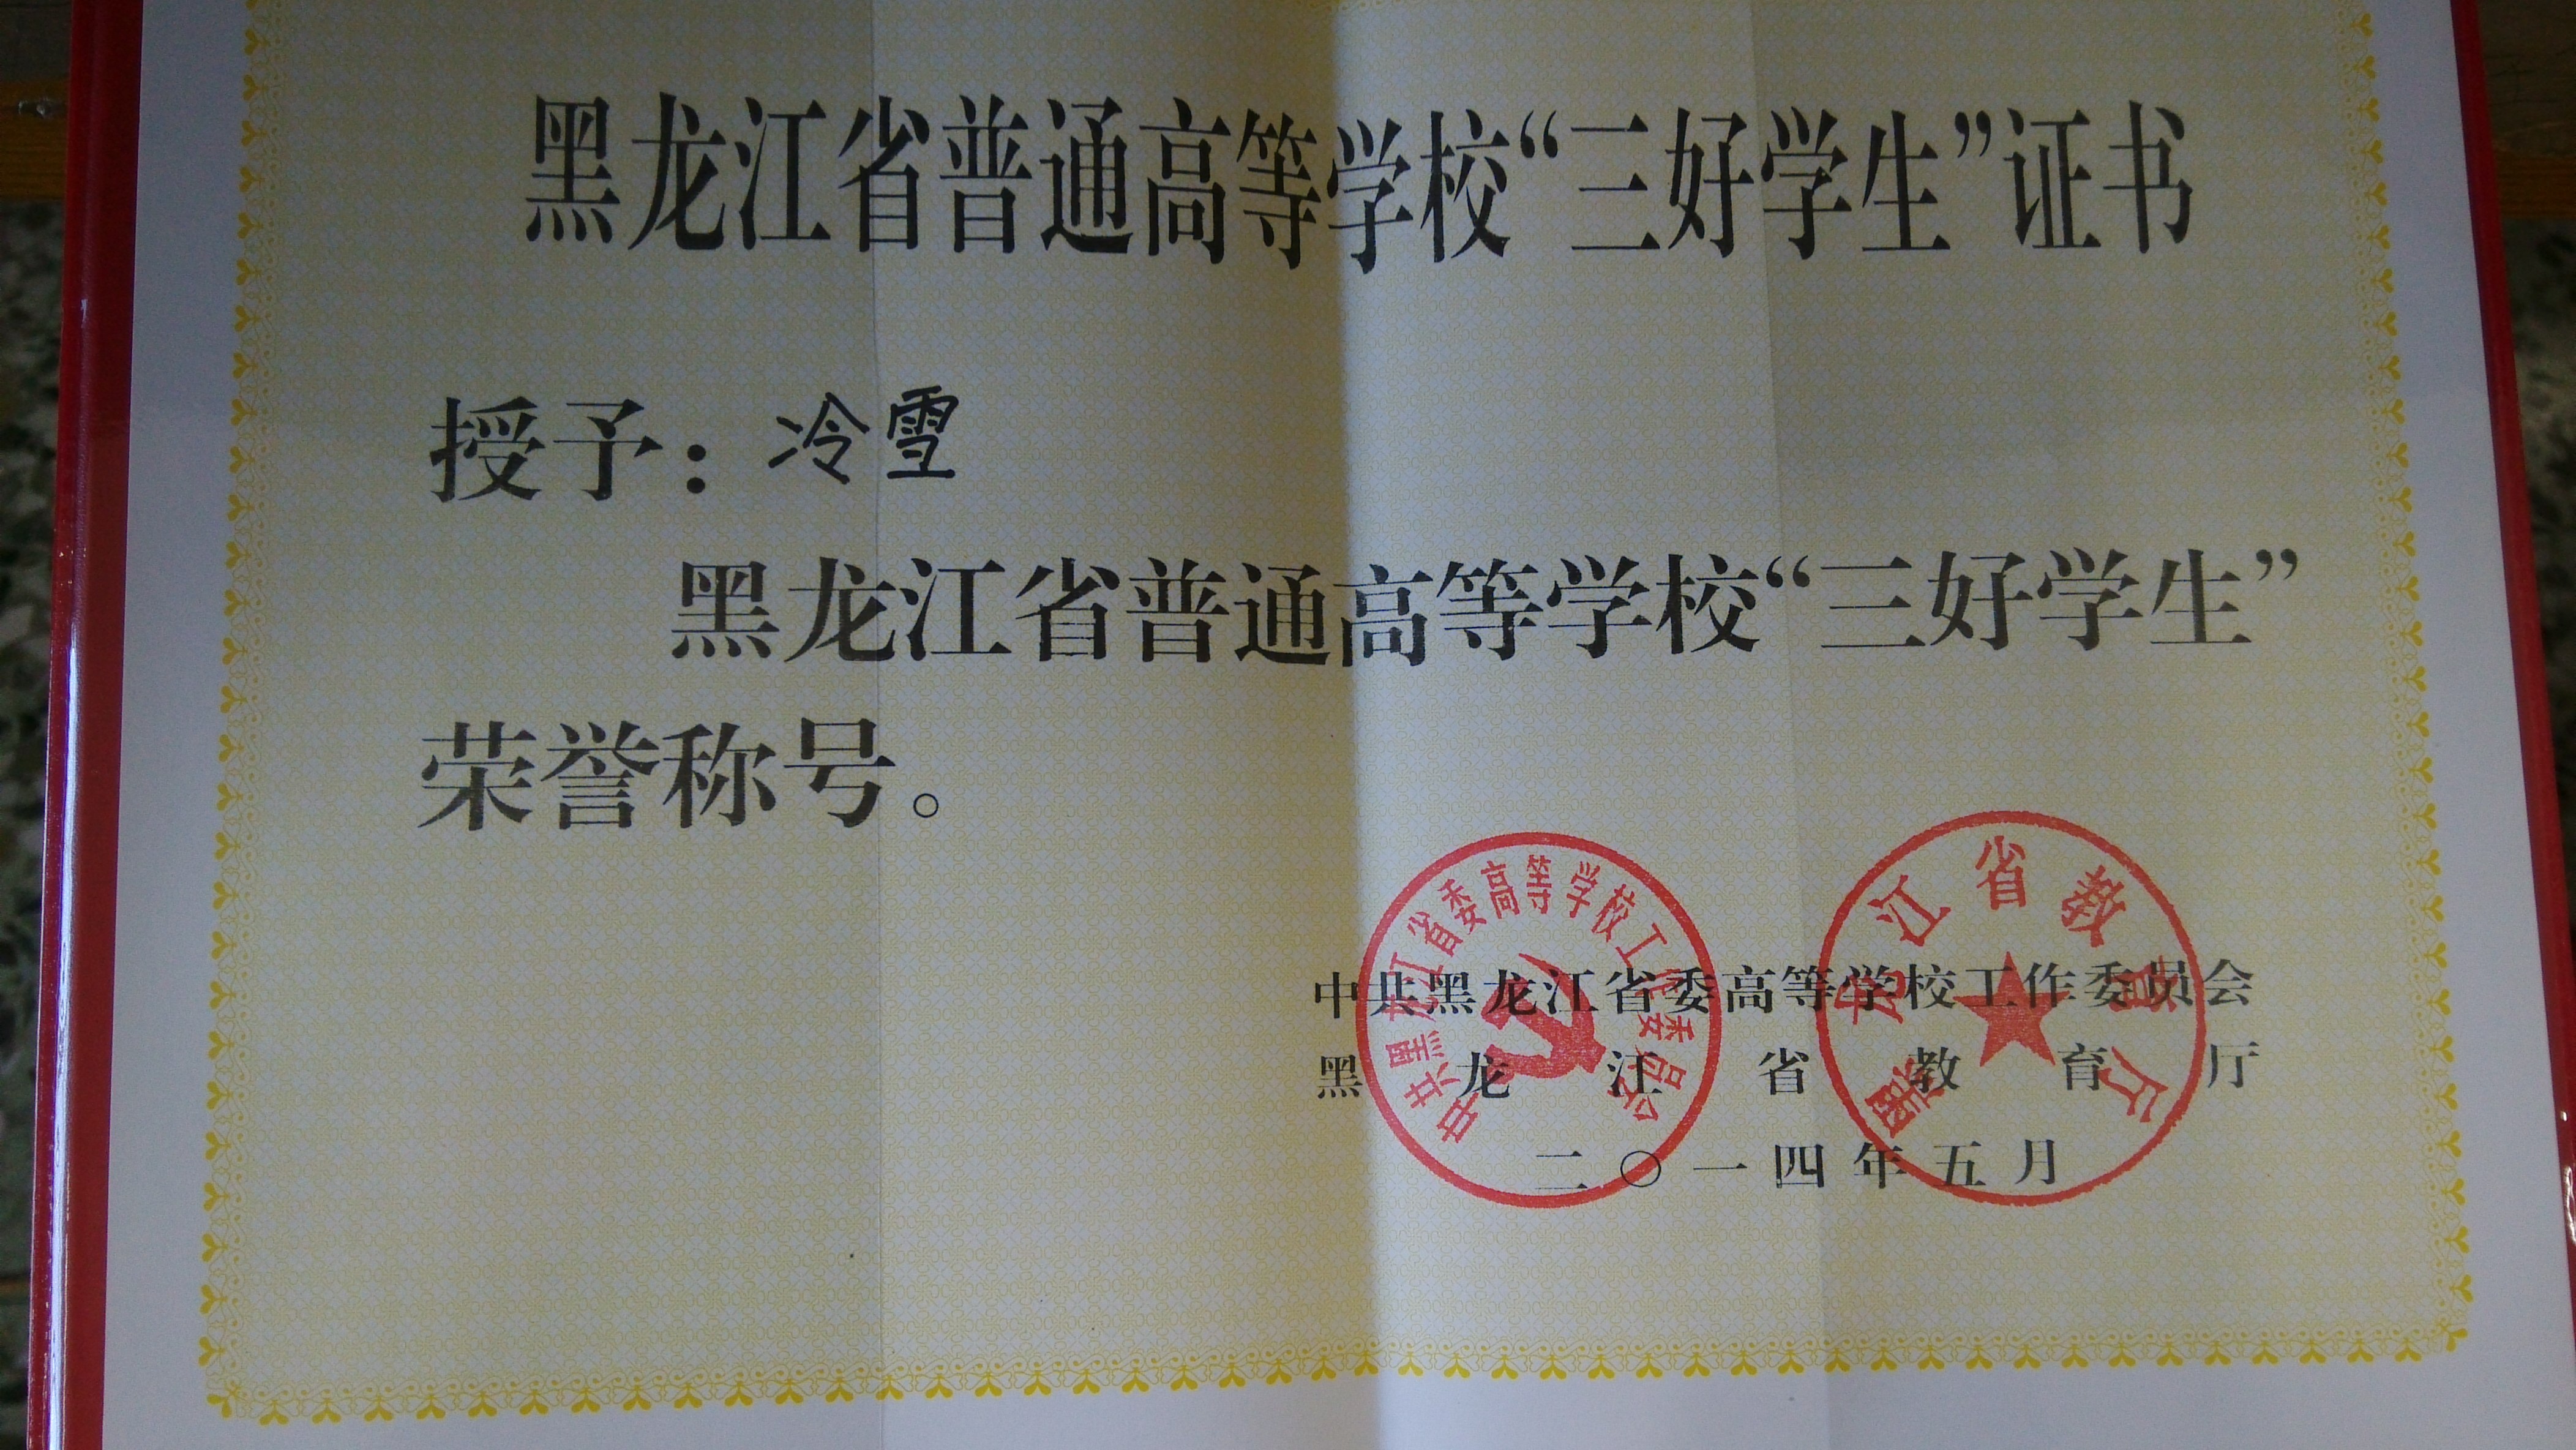 黑龙江省普通高等学校“三好学生”证书
授予：冷雪
黑龙江省普通高等学校“三好学生”
荣誉称号。
中共黑龙江省委高等学校工作委员会
黑龙江省教育厅
二〇一四年五月
中共黑龙江省委高等学校工作委员会
黑龙江省教育厅